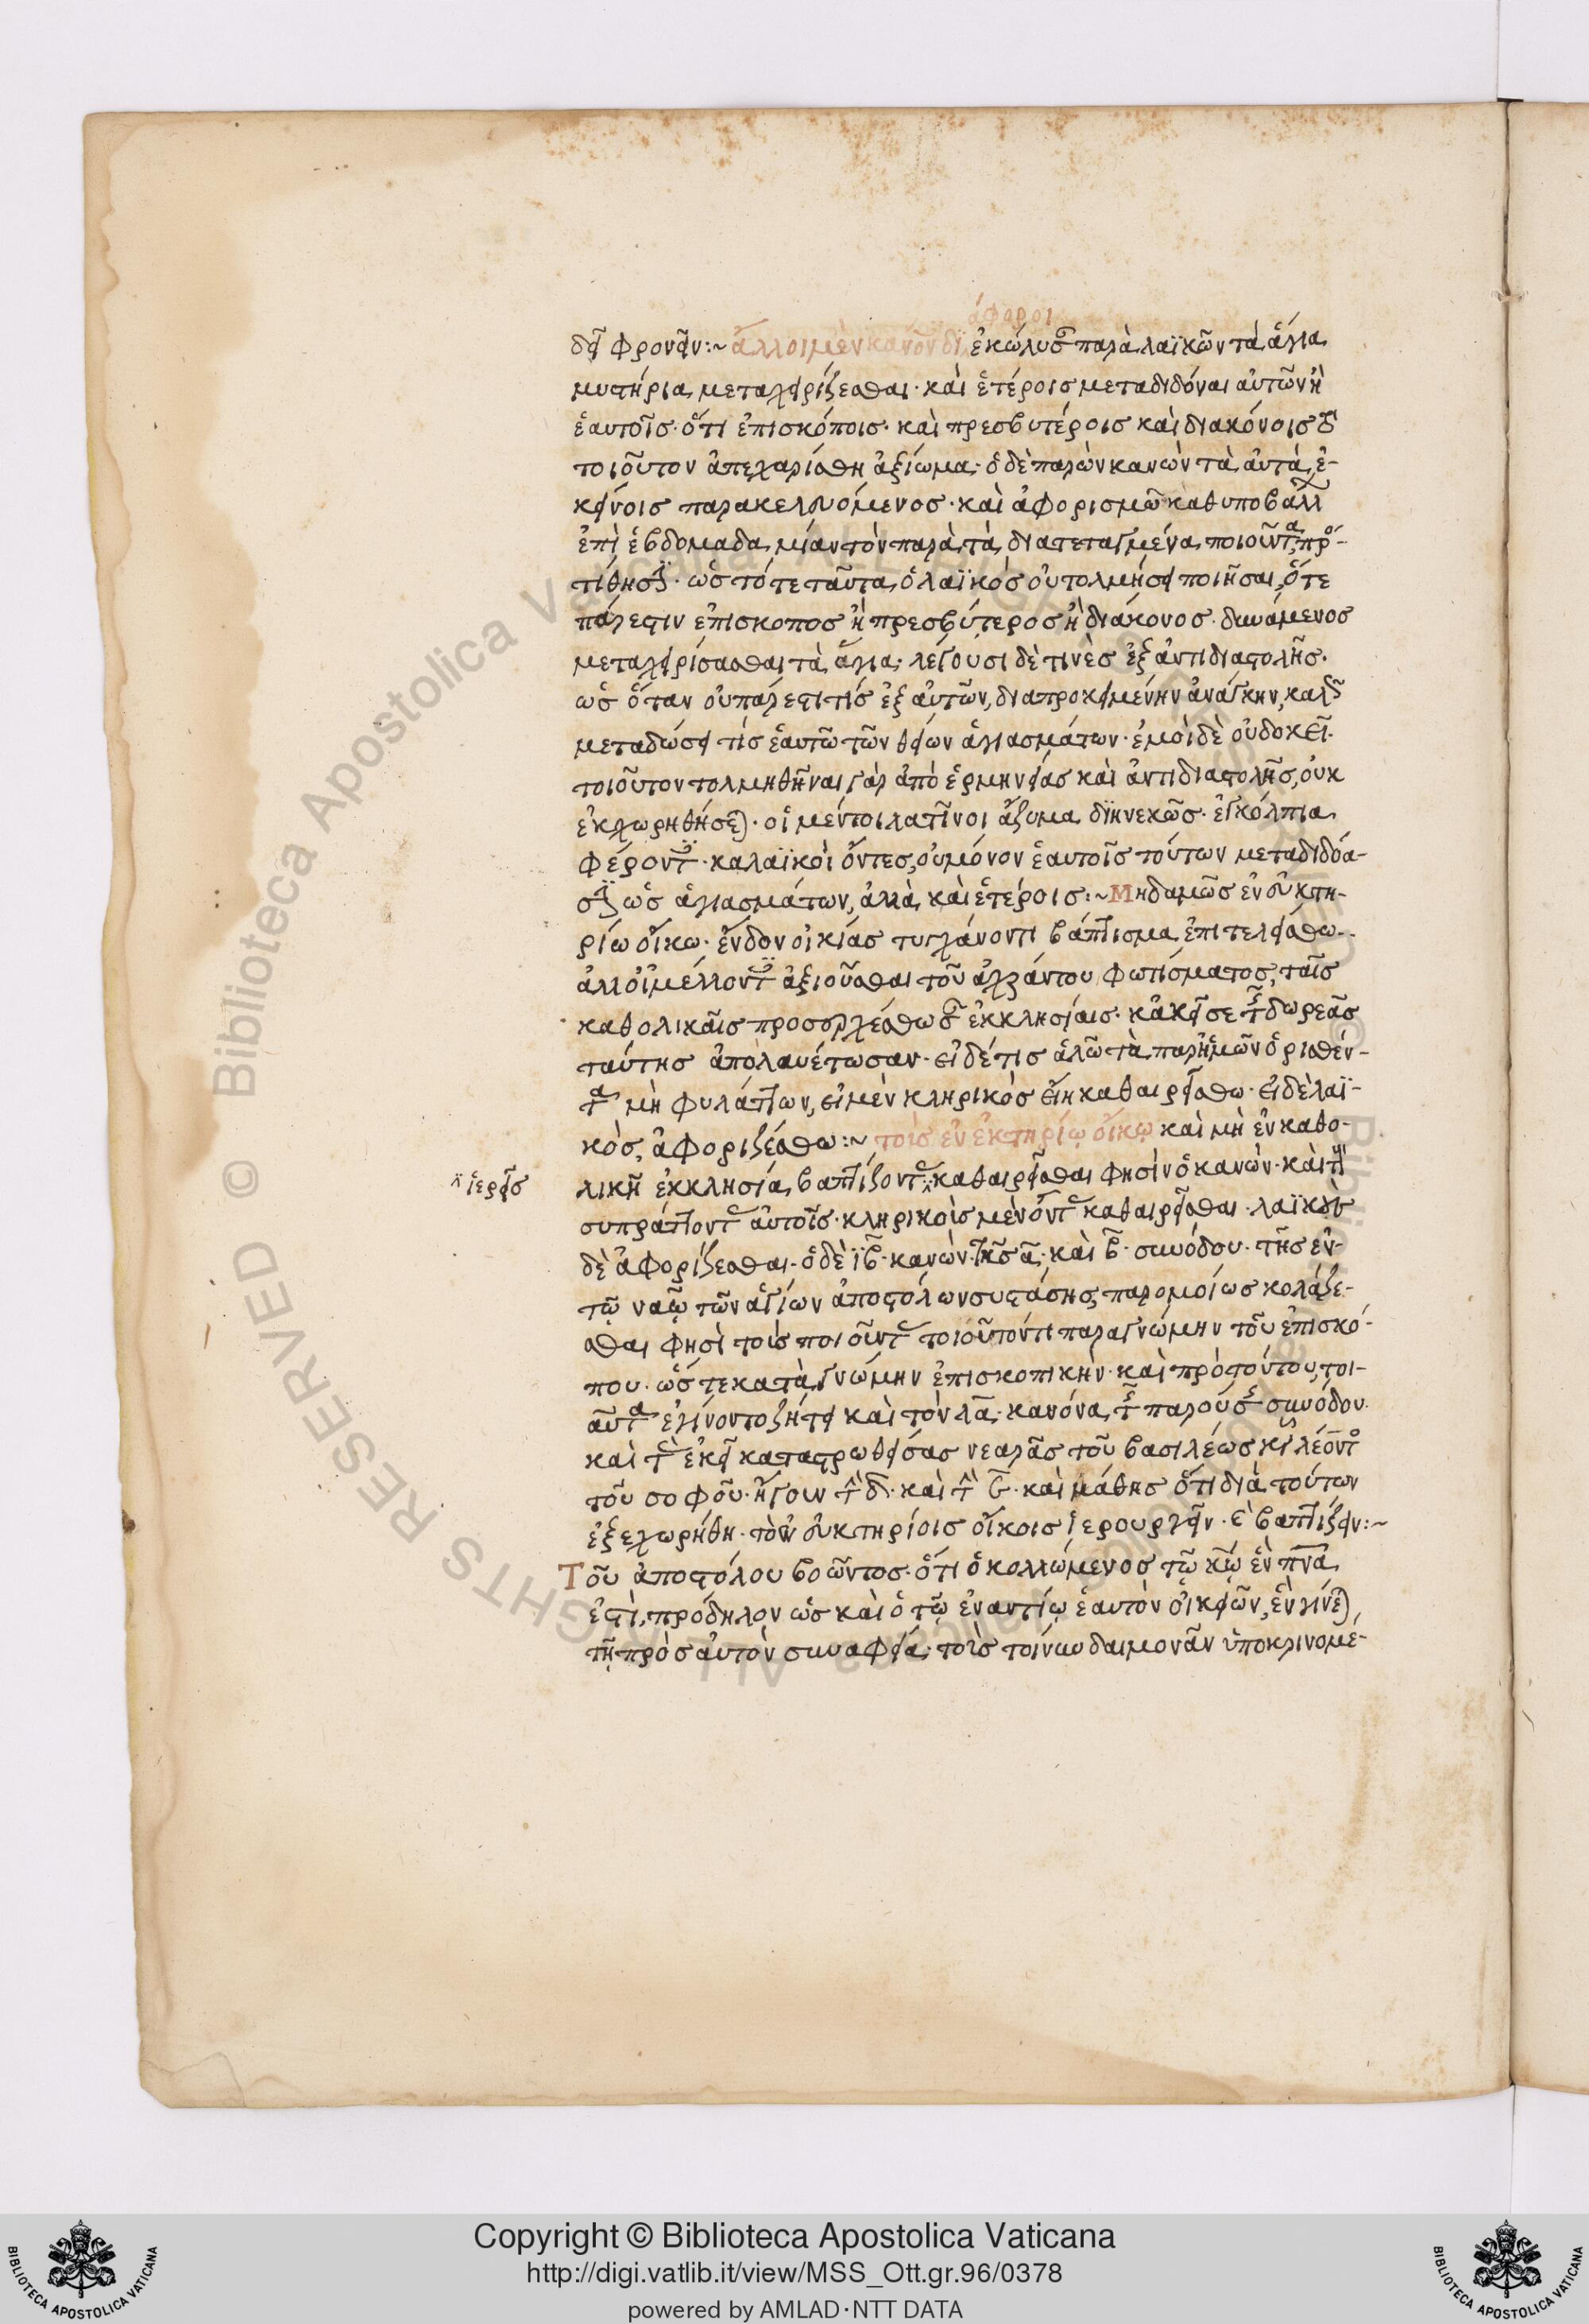 ἄφοροι
δεῖ φρονεῖν:~ ἄλλοι μὲν κανόν δι ἐκώλυσαν παρὰ λαϊκῶν τὰ ἅγια
μυστήρια μεταχειρίζεσθαι· καὶ ἑτέροις μεταδιδόναι αὐτῶν ἢ
ἑαυτοῖς· ὅτι ἐπισκόποις· καὶ πρεσβυτέροις καὶ διακόνοις τὸ
τοιοῦτον ἀπεχαρίσθη ἀξίωμα· ὁ δὲ παρὼν κανὼν τὰ αὐτὰ ἐ-
κείνοις παρακελευόμενος· καὶ ἀφορισμῶ καθυποβάλλ
ἐπὶ ἑβδομάδα μίαν τὸν παρὰ τὰ διατεταγμένα ποιοῦντα, προ-
τίθησιν· ὡς τότε ταῦτα ὁ λαϊκὸς οὐ τολμήσει ποιῆσαι, ὅτε
πάρεστιν ἐπίσκοπος ἢ πρεσβύτερος ἢ διάκονος· δυνάμενος
μεταχειρίσασθαι τὰ ἅγια· λέγουσι δὲ τινὲς ἐξ ἀντιδιαστολῆς·
ὡς ὅταν οὐ πάρεστι τίς ἐξ αὐτῶν, δια προκειμένην ἀνάγκην, καλῶς
μεταδώσει τίς ἑαυτῶ τῶν θείων ἁγιασμάτων· ἐμοὶ δὲ οὐ δοκεῖ·
τοιοῦτον τολμηθῆναι γὰρ ἀπὸ ἑρμηνείας καὶ ἀντιδιαστολῆς, οὐκ
ἐκχωρηθήσεται· οἱ μέντοι λατῖνοι ἄζυμα διηνεκῶς· ἐγκόλπια
φέροντες· κα λαϊκοὶ ὄντες, οὐ μόνον ἑαυτοῖς τούτων μεταδιδόα-
σιν ὡς ἁγιασμάτων, ἀλλὰ καὶ ἑτέροις:~ Μηδαμῶς ἐν εὐκτη-
ρίω οἴκω· ἔνδον οἰκίας τυγχάνοντι βάπτισμα ἐπιτελείσθω·
ἀλλ οἱ μέλλοντες ἀξιοῦσθαι τοῦ ἀχράντου φωτίσματος, ταῖς
καθολικαῖς προσερχέσθωσαν ἐκκλησίαις· κἀκεῖσε τῆς δωρεᾶς
ταύτης ἀπολαυέτωσαν· εἰ δέ τις ἁλῶ τὰ παρ ἡμῶν ὁρισθέν-
τα μὴ φυλάττων, εἰ μὲν κληρικὸς εἴη καθαιρείσθω· εἰ δὲ λαϊ-
κὸς, ἀφοριζέσθω:~ τοῖς ἐν ἐκτηρίῳ οἴκῳ καὶ μὴ ἐν καθο-
ἱερεῖς
λικῆ ἐκκλησία βαπτίζοντας καθαιρεῖσθαι φησὶν ὁ κανών· καὶ τοὺς
συπράττοντας αὐτοῖς· κληρικοὶς μὲν ὄντας καθαιρεῖσθαι· λαϊκοὺς
δὲ ἀφορίζεσθαι· ὁ δὲ ϊβ· κανὼν τῆς ᾱ· καὶ β̄· συνόδου· τῆς ἐν
τῷ ναῷ τῶν ἁγίων ἀποστόλων συστάσης, παρομοίως κολάζε-
σθαι φησὶ τοὶς ποιοῦντας τοιοῦτόν τι παρα γνώμην τοῦ ἐπισκό-
που· ὥς τε κατὰ γνώμην ἐπισκοπικὴν· καὶ πρὸ τούτου, τοι-
αῦτα ἐγίνοντο ζήτει καὶ τὸν λᾱ· κανόνα τῆς παρούσης συνόδου·
καὶ τὰς ἐκεῖ καταστρωθείσας νεαρᾶς τοῦ βασιλέως κυ λέοντος
τοῦ σοφοῦ· ἤγουν τὴν δ̄· καὶ τὴν ῑε· καὶ μάθης ὅτι διὰ τούτων
ἐξεχωρήθη· τὸ ἐν εὐκτηρίοις οἴκοις ἱερουργεῖν· καὶ βαπτίζειν:~
Τοῦ ἀποστόλου βοῶντος· ὅτι ὁ κολλώμενος τῷ κῷ ἓν πνᾶ
ἐστὶ, πρόδηλον ὡς καὶ ὁ τῷ ἐναντίῳ ἑαυτὸν οἰκειῶν, ἓν γίνεται
τῇ πρὸς αὐτὸν συναφείᾳ· τοὶς τοίνυν δαιμονᾶν ὑποκρινομέ-
Copyright © Biblioteca Apostolica Vaticana
http://digi.vatlib.it/view/MSS_Ott.gr.96/0378
powered by AMLAD·NTT DATA
BIBLIOTECA APOSTOLICA VATICANA
BIBLIOTECA APOSTOLICA VATICANA
© Biblioteca Apostolica Vaticana ALL RIGHTS RESERVED